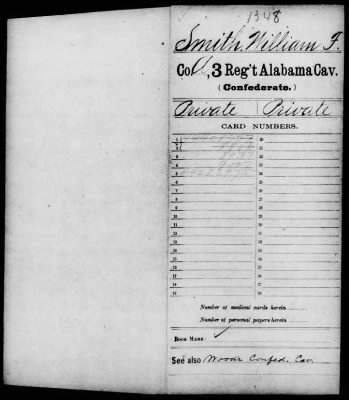 1348
Smith, William F.
Co. , 3 Reg't Alabama Cav.
(Confederate.)
Private Private
CARD NUMBERS.
1 20
2 21
3 22
4 23
5 24
6 25
7 26
8 27
9 28
10 29
11 30
12 31
13 32
14 33
15 34
16 35
17 36
18 37
19 38
Number of medical cards herein
Number of personal papers herein
BOOK MARK:
See also Woods Confed. Cav.